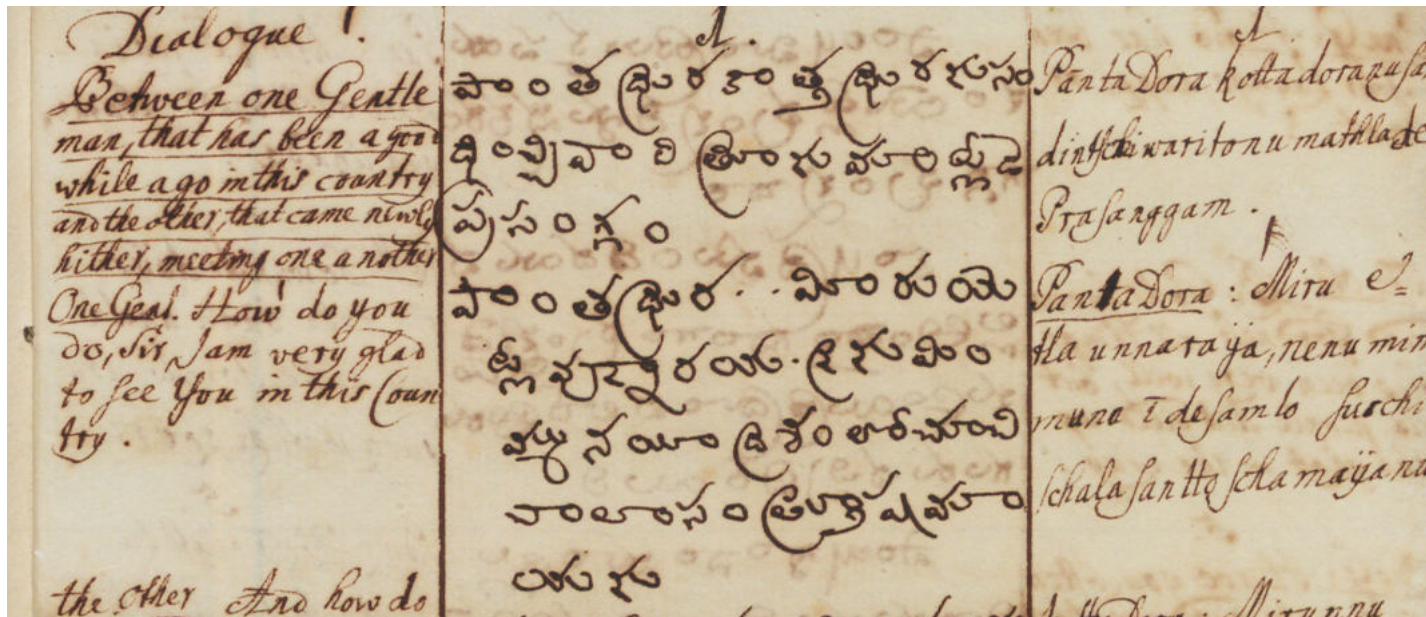 Dialogue 1.
Between one Gentle
man, that has been a good
while ago in this country
and the other, that came newly
hither, meeting one another
One Gent. How do you
do, Sir, I am very glad
to see You in this Coun
try.
the other And how do
A.
పాంతదొర కొత్తదొరను సం
దించ్చివారితోను మాట్లాడె
ప్రసంగ్గం
పాంతదొర .. మీరు యె
ట్లావున్నారయ. నేను మిం
మ్మున యీ దేశంలో చూచి
చాలా సంతోషమా
యను
A
Panta Dora kotta doranu sa
dintschi waritonu mathlade
Prasanggam.
Panta Dora: Miru e=
tla unnaraya, nenu min
muna ī desamlo susch
schala santtoschamayana
Mirunnu